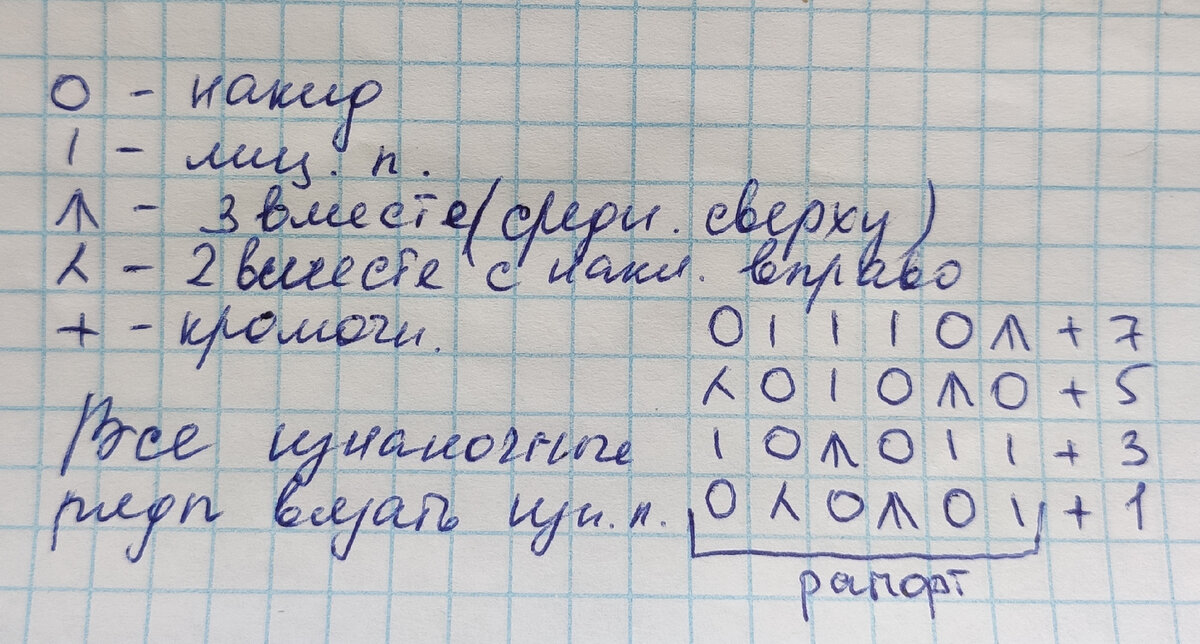 О - накид
I - лиц. п.
⩚ - 3 вместе (средн. сверху)
⅄ - 2 вместе с накл. вправо
+ - кромочн.
О I I I О ⩚ + 7
⅄ О I О ⩚ О + 5
I О ⩚ О I I + 3
О ⅄ О ⩚ О I + 1
Все изнаночные
ряды вязать изн. п.
рапорт